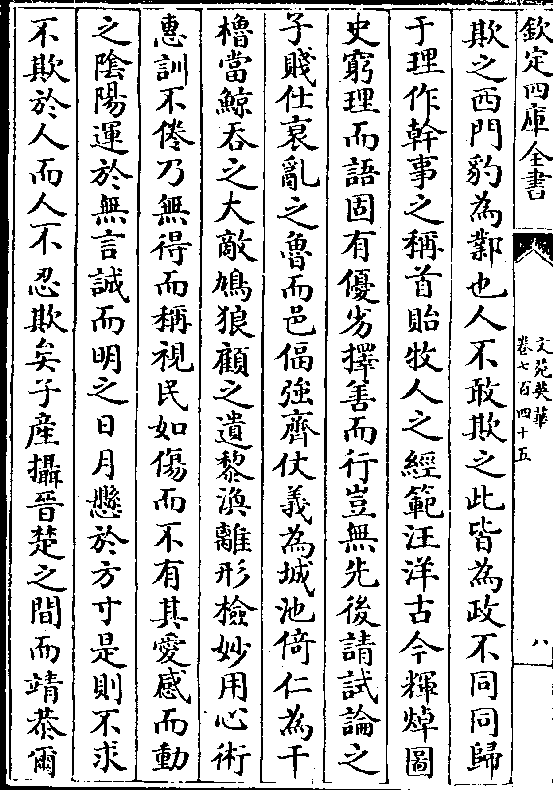 欽定四庫全書
文苑英華
卷七百四十五
八
欺之西門豹為鄴也人不敢欺之此皆為政不同同歸
于理作幹事之稱首貽牧人之經範汪洋古今輝焯圖
史窮理而語固有優劣擇善而行豈無先後請試論之
子賤仕衰亂之魯而邑偪強齊仗義為城池倚仁為干
櫓當鯨吞之大敵鳩狼顧之遺黎渙離形檢妙用心術
惠訓不倦乃無得而稱視民如傷而不有其愛感而動
之陰陽運於無言誠而明之日月懸於方寸是則不求
不欺於人而人不忍欺矣子産攝晉楚之間而靖恭爾